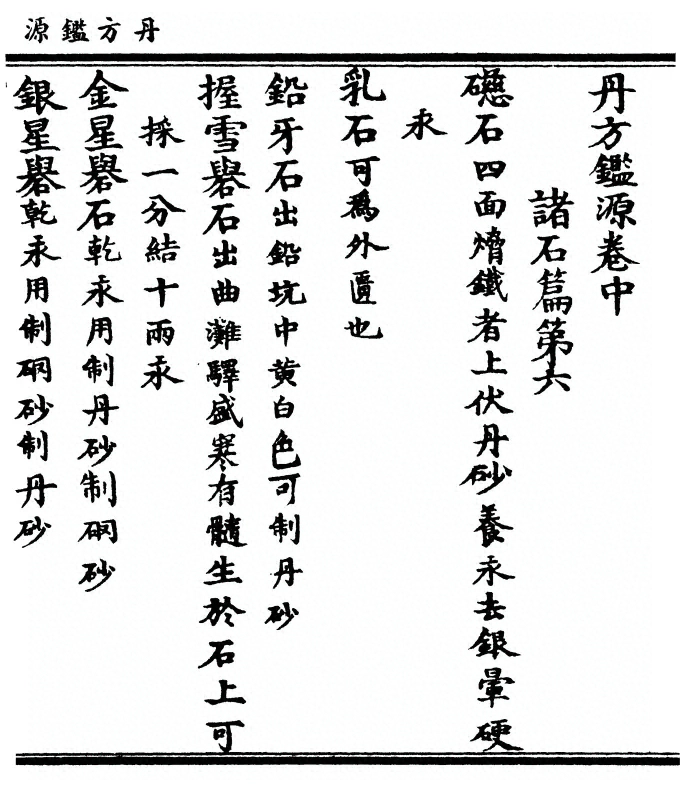 丹方鑑源
丹方鑑源卷中
諸石篇第六
礠石四面熁鐵者上伏丹砂養汞去銀暈硬
汞
乳石可為外匱也
鉛牙石出鉛坑中黃白色可制丹砂
握雪礜石出曲灘驛盛寒有髓生於石上可
採一分結十兩汞
金星礜石乾汞用制丹砂制硇砂
銀星礜乾汞用制硇砂制丹砂